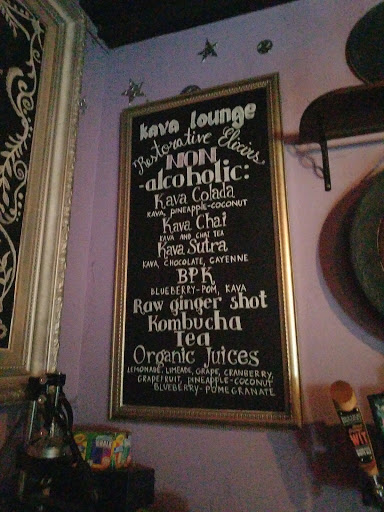 kava lounge
Restorative Elixirs
NON
-alcoholic:
Kava Colada
KAVA, PINEAPPLE-COCONUT
Kava Chai
KAVA AND CHAI TEA
Kava Sutra
KAVA, CHOCOLATE, CAYENNE
BPK
BLUEBERRY-POM, KAVA
Raw ginger shot
Kombucha
Tea
Organic Juices
LEMONADE, LIMEADE, GRAPE, CRANBERRY,
GRAPEFRUIT, PINEAPPLE-COCONUT
BLUEBERRY-POMEGRANATE